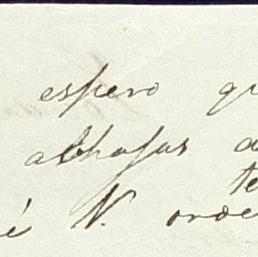 espero qu
alhajas a
te
é N. orde